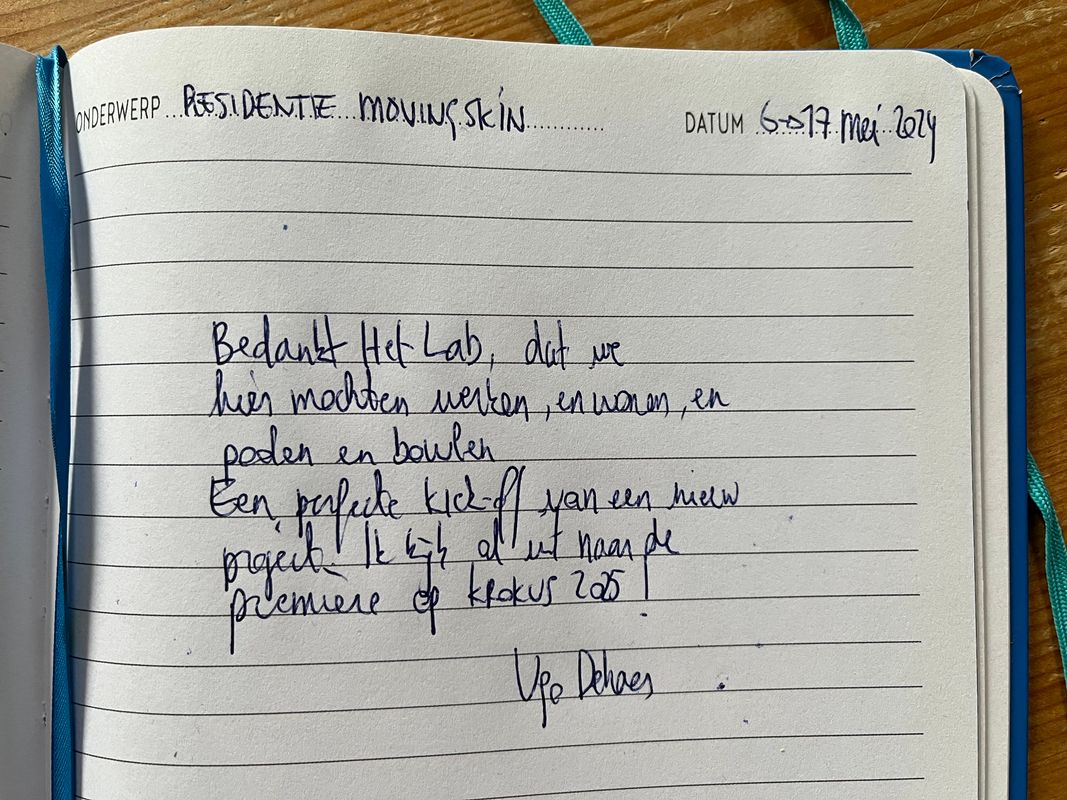 ONDERWERP RESIDENTIE MOVINGSKIN
DATUM 6→17 mei 2024
Bedankt Het Lab, dat we
hier mochten werken, en wonen, en
poolen en bowlen
Een perfecte kick-off van een nieuw
project. Ik kijk al uit naar de
première op KROKUS 2025!
Ugo Dehaes